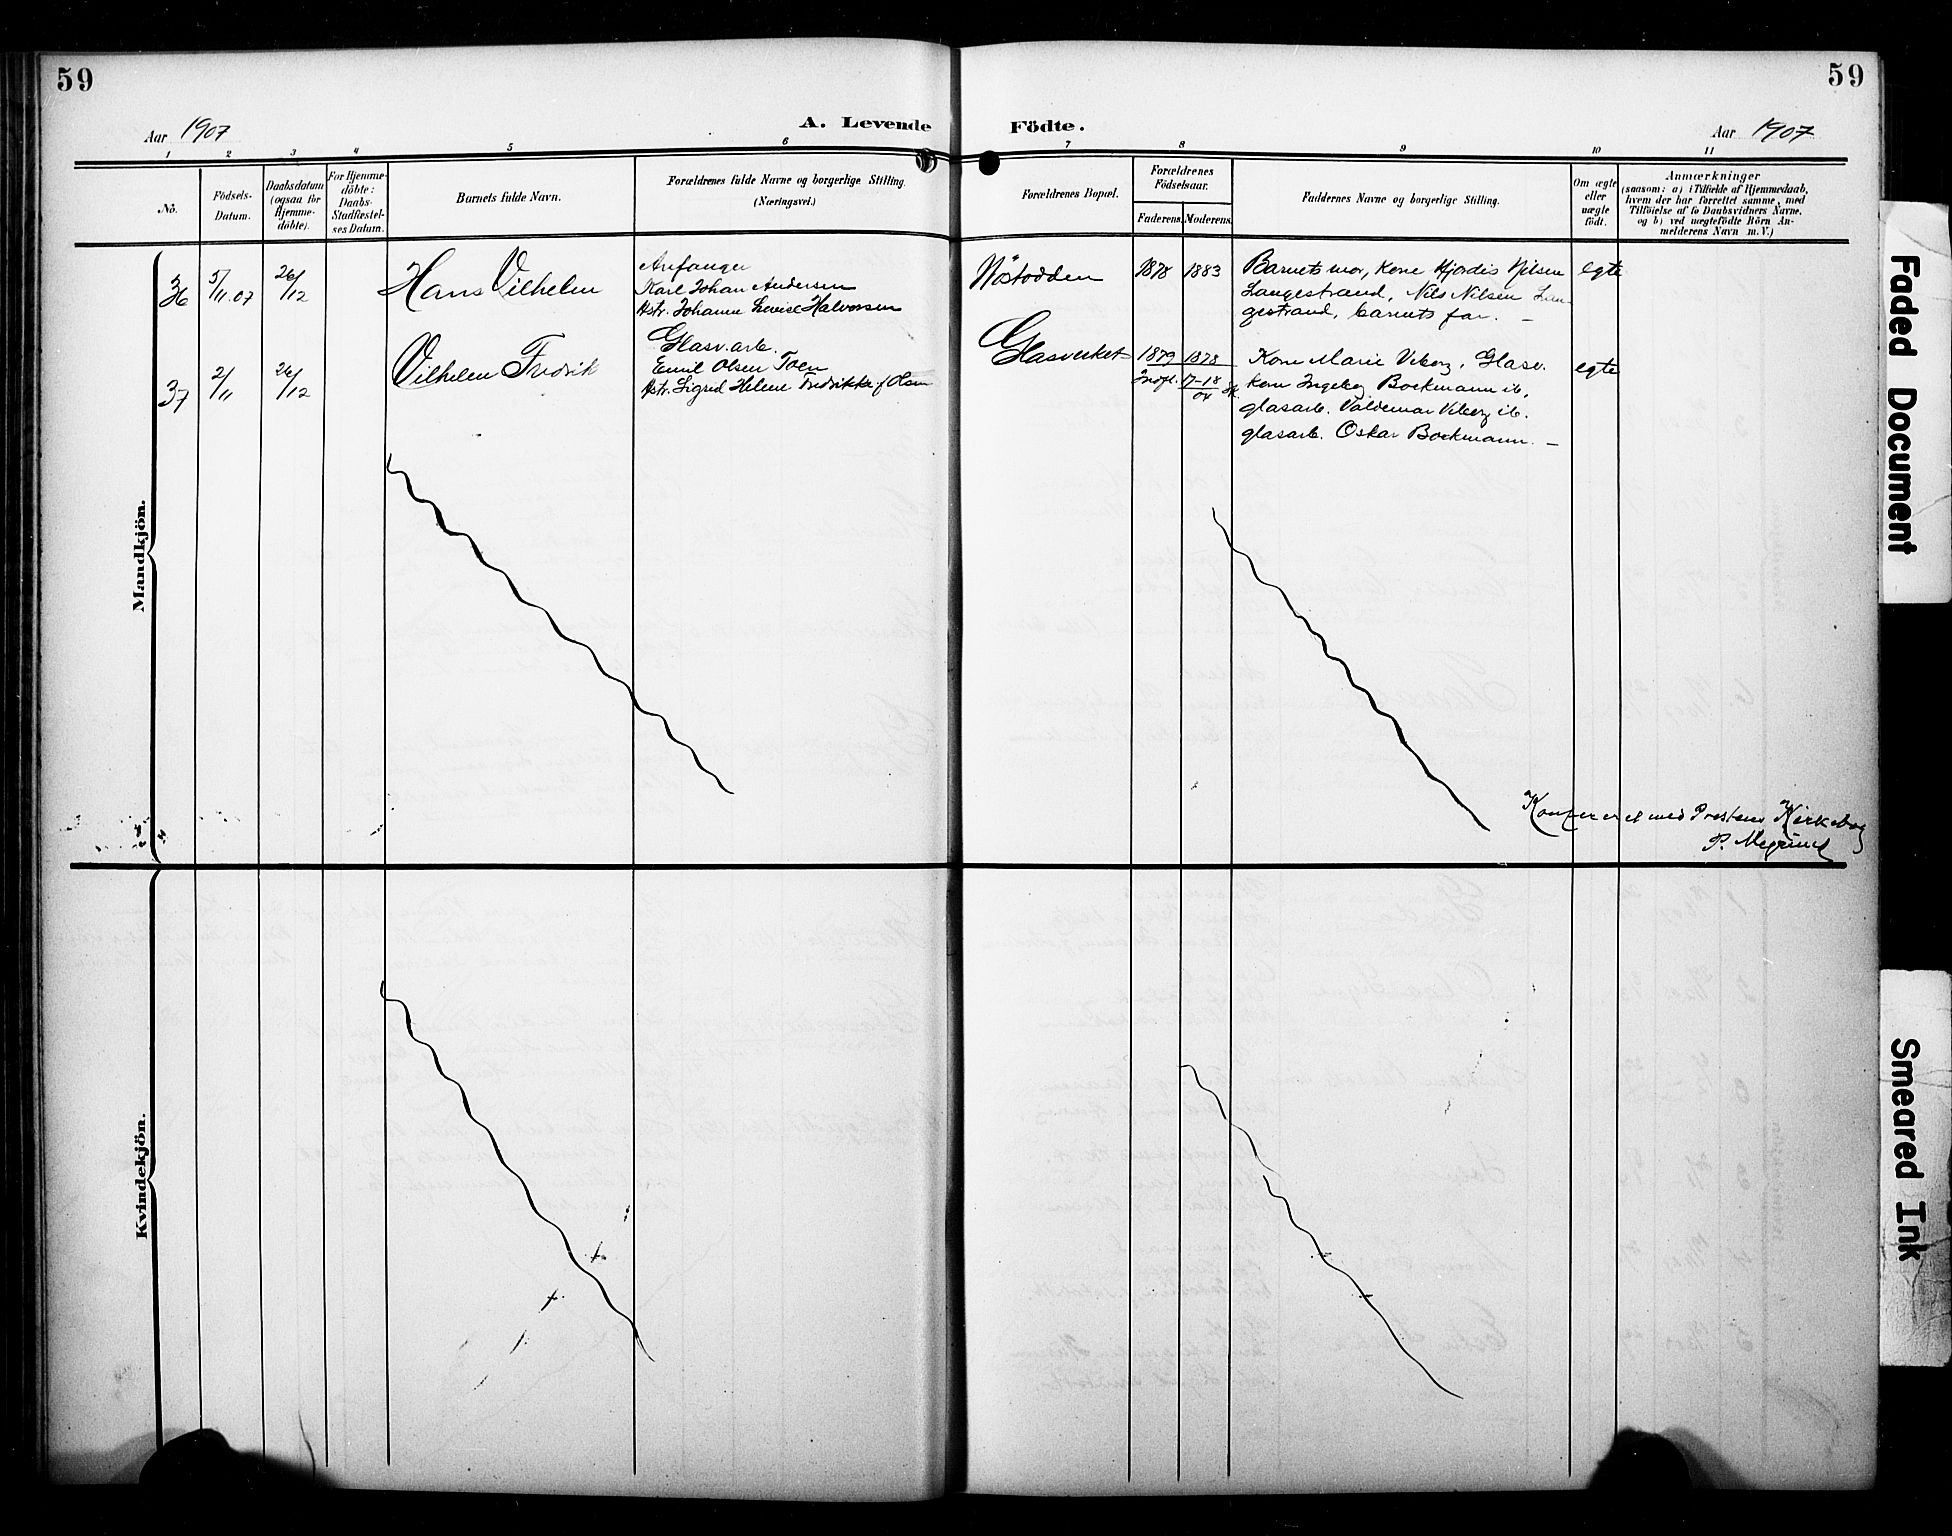 59
59
Aar 1907
A. Levende Födte.
Aar 1907
1 2 3 4 5 6 7 8 9 10 11
No.
Födsels-Datum.
Daabsdatum (ogsaa for Hjemme-döbte).
For Hjemme-döbte: Daabs-Stadfæstel-ses Datum.
Barnets fulde Navn.
Forældrenes fulde Navne og borgerlige Stilling.
(Næringsvei.)
Forældrenes Bopæl.
Forældrenes Födselsaar.
Faderens. Moderens.
Faddernes Navne og borgerlige Stilling.
Om ægte eller uægte födt.
Anmærkninger
(saasom: a) i Tilfælde af Hjemmedaab,
hvem der har forrettet samme, med
Tilföielse af to Daabsvidners Navne,
og b) ved uegtefödte Börn An-
melderens Navn m. V.)
Mandkjön.
36 5/11.07 26/12 Hans Vilhelm
Anfanger
Karl Johan Andersen
Hstr. Johanne Lovise Halvorsen
Nöstodden 1878 1883
Barnets mor, Kone Hjördis Nilsen
Langestrand, Nils Nilsen Lan-
gestrand, barnets far. —
egte
37 2/11 26/12 Vilhelm Fredrik
Glasv.arb.
Emil Olsen Toen
Hstr. Sigrid Helene Fredrikke f Olsen
Glasverket 1879 1878
17-18
04
Kone Marie Viberg, Glasv.
kone Ingeborg Bockmann ib,
glasarb. Valdemar Viberg ib.
glasarb. Oskar Bockmann. —
egte
Konfereret med Prestens Kirkebog
P.
Kvindekjön.
Faded Document
Smeared Ink